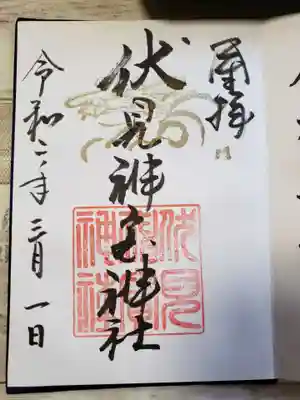 奉拝
伏見神宝神社
伏見神宝神社
令和二年三月一日